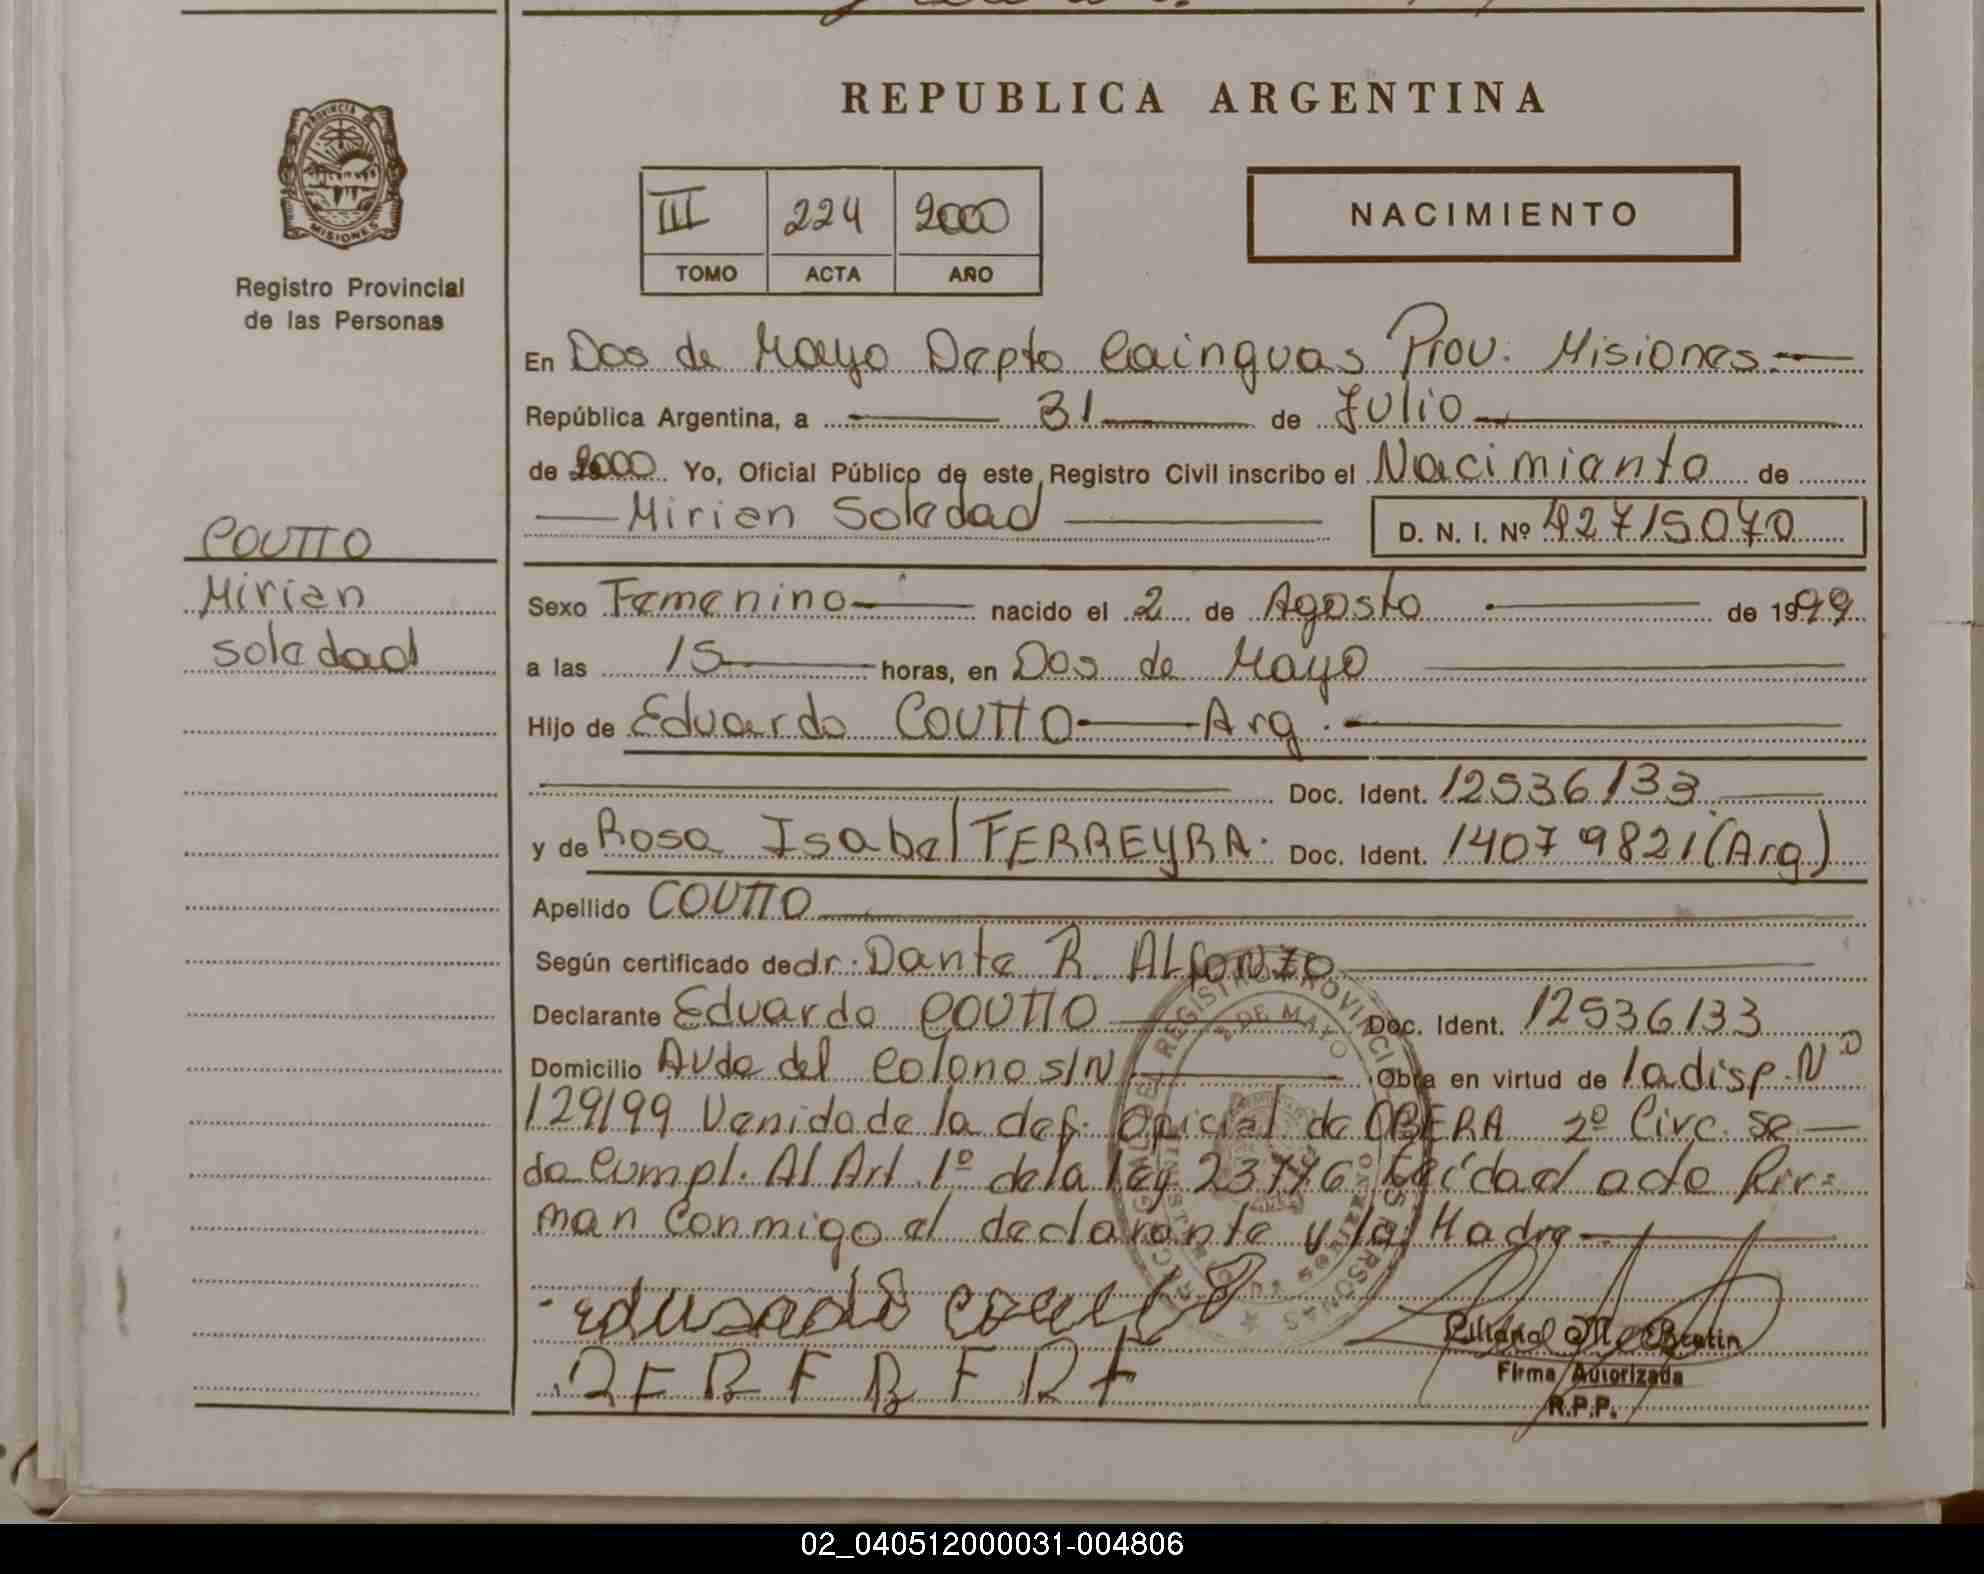 REPUBLICA ARGENTINA
PROVINCIA DE
MISIONES
Registro Provincial
de las Personas
III 224 2000
TOMO ACTA AÑO
NACIMIENTO
En Dos de Mayo Depto Cainguas Prov. Misiones
República Argentina, a 31 de Julio
de 2000 Yo, Oficial Público de este Registro Civil inscribo el Nacimiento de
Mirian Soledad D. N. I. Nº 42715070
COUTTO
Mirian
Soledad
Sexo Femenino nacido el 2 de Agosto de 1999
a las 15 horas, en Dos de Mayo
Hijo de Eduardo COUTTO Arg.
Doc. Ident. 12536133
y de Rosa Isabel FERREYRA. Doc. Ident. 14079821 (Arg)
Apellido COUTTO
Según certificado de dr. Dante R. ALfonzo
Declarante Eduardo COUTTO Doc. Ident. 12536133
Domicilio Avda del Colono S/N Obra en virtud de la disp. Nº
129/99 Venida de la def. Oficial de OBERA 2º Circ. se
da Cumpl. Al Art. 1º de la ley 23776 leída el acta fir=
man Conmigo el declarante y la Madre
Eduardo Coutto
Firma Autorizada
R.P.P.
02_040512000031-004806